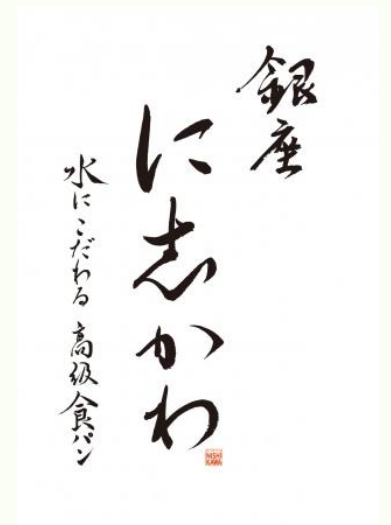 銀座
に志かわ
水にこだわる高級食パン
NISHI
KAWA